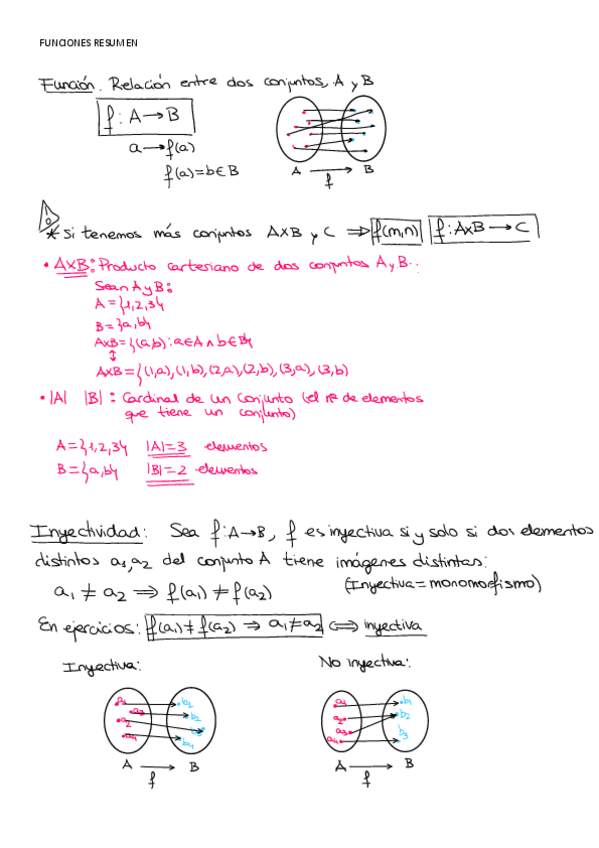 FUNCIONES RESUMEN
Función. Relación entre dos conjuntos, A y B
f: A→B
a → f(a)
f(a)=b∈B
A → B
f
* Si tenemos más conjuntos AxB y C ⇒ f(m,n) f: AxB → C
• AxB: Producto cartesiano de dos conjuntos A y B.
Sean A y B:
A = {1,2,3}
B = {a,b}
AxB = {(a,b): a∈A ∧ b∈B}
↕
AxB = {(1,a),(1,b),(2,a),(2,b),(3,a),(3,b)
• |A| |B| : Cardinal de un conjunto (el nº de elementos
que tiene un conjunto)
A = {1,2,3} |A|=3 elementos
B = {a,b} |B|=2 elementos
Inyectividad: Sea f: A→B, f es inyectiva si y solo si dos elementos
distintos a₁,a₂ del conjunto A tiene imágenes distintas:
a₁ ≠ a₂ ⇒ f(a₁) ≠ f(a₂) (Inyectiva = monomorfismo)
En ejercicios: f(a₁) ≠ f(a₂) ⇒ a₁≠a₂ ⟺ inyectiva
Inyectiva: No inyectiva:
a₁ a₃ a₂ a₄ b₁ b₂ b₃ b₄
a₁ a₂ a₃ a₄ b₁ b₂ b₃
A → B A → B
f f